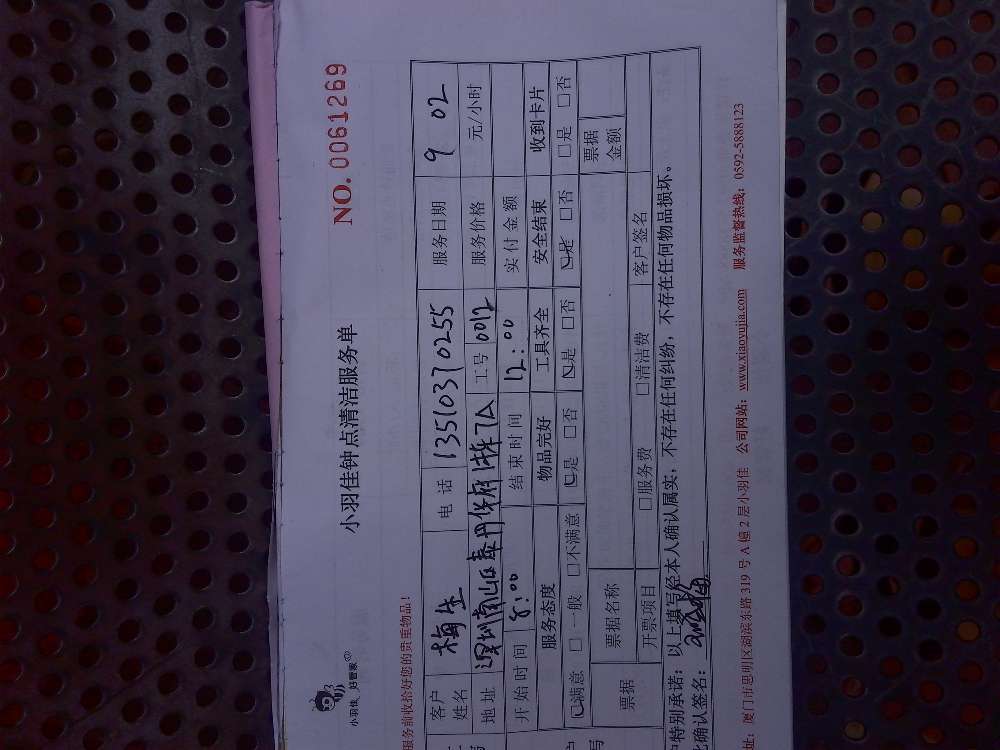 小羽佳 好管家
小羽佳钟点清洁服务单
NO. 0061269
服务前收拾好您的贵重物品!
客户姓名 梅生 电话 13510370255 服务日期 9 02
地址 深圳南山区 府 7A 工号 0012 服务价格 元/小时
开始时间 8:00 结束时间 12:00 实付金额
服务态度 物品完好 工具齐全 安全结束 收到卡片
☑满意 □一般 □不满意 ☑是 □否 ☑是 □否 ☑是 □否 □是 □否
票据 票据名称 票据金额
开票项目 □服务费 □清洁费 客户签名
特别承诺:以上填写经本人确认属实,不存在任何纠纷,不存在任何物品损坏。
确认签名:
址:厦门市思明区湖滨东路 319 号 A 幢 2 层小羽佳 公司网站:www.xiaoyujia.com 服务监督热线:0592-5888123